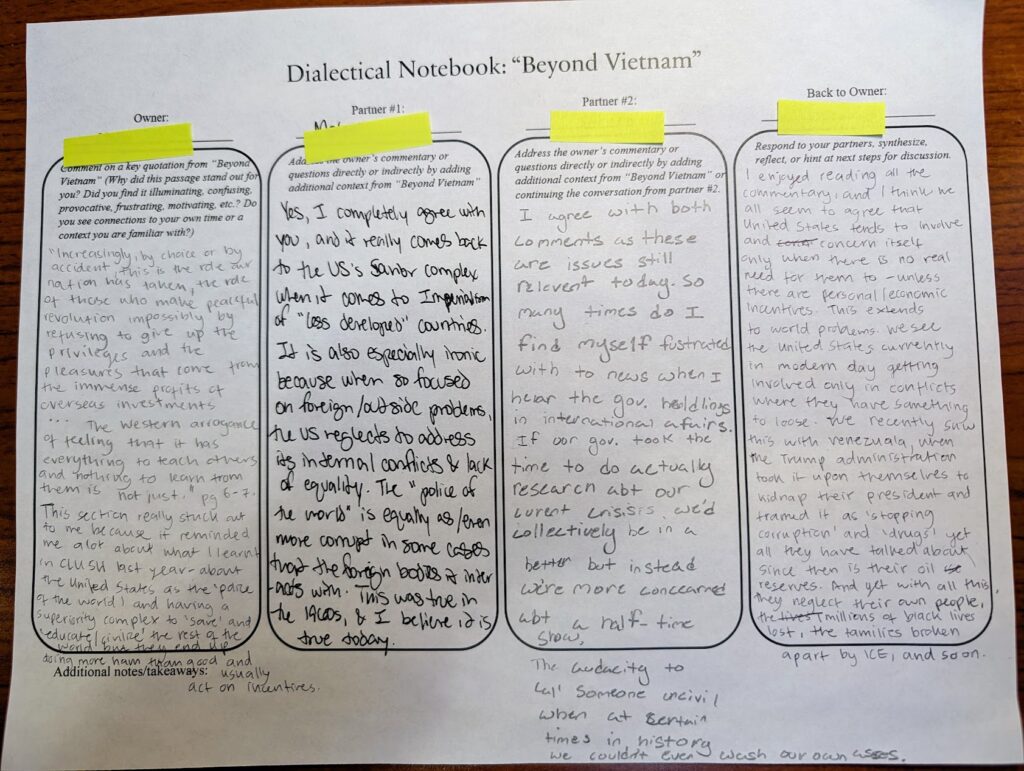 Dialectical Notebook: "Beyond Vietnam"
Owner:
Comment on a key quotation from "Beyond
Vietnam" (Why did this passage stand out for
you? Did you find it illuminating, confusing,
provocative, frustrating, motivating, etc.? Do
you see connections to your own time or a
context you are familiar with?)
"Increasingly, by choice or by
accident, this is the role our
nation has taken, the role
of those who make peaceful
revolution impossibly by
refusing to give up the
privileges and the
pleasures that come from
the immense profits of
overseas investments
... The western arrogance
of feeling that it has
everything to teach others
and nothing to learn from
them is not just." pg 6-7.
This section really stuck out
to me because it reminded
me alot about what I learnt
in CLUSH last year - about
the United States as the 'police
of the world' and having a
superiority complex to 'save' and
'educate/civilize' the rest of the
world but they end up
doing more harm than good and
usually
act on incentives.
Additional notes/takeaways:
Partner #1:
Address the owner's commentary or
questions directly or indirectly by adding
additional context from "Beyond Vietnam"
Yes, I completely agree with
you, and it really comes back
to the US's Savior complex
when it comes to Imperialism
of "less developed" countries.
It is also especially ironic
because when so focused
on foreign/outside problems,
the US neglects to address
its internal conflicts & lack
of equality. The "police of
the world" is equally as/even
more corrupt in some cases
than the foreign bodies it inter
acts with. This was true in
the 1960s, & I believe it is
true today.
Partner #2:
Address the owner's commentary or
questions directly or indirectly by adding
additional context from "Beyond Vietnam" or
continuing the conversation from partner #2.
I agree with both
comments as these
are issues still
relevent today. So
many times do I
find myself fustrated
with to news when I
hear the gov.
in international afairs.
If our gov. took the
time to do actually
research abt our
curent crisisis we'd
collectively be in a
better but instead
we're more concerned
abt a half-time
show,
The audacity to
cal' someone uncivil
when at certain
times in history
we couldn't even wash our own asses.
Back to Owner:
Respond to your partners, synthesize,
reflect, or hint at next steps for discussion.
I enjoyed reading all the
commentary, and I think we
all seem to agree that
United States tends to involve
and concern itself
only when there is no real
need for them to - unless
there are personal/economic
incentives. This extends
to world problems. We see
the United States currently
in modern day getting
involved only in conflicts
where they have something
to loose. We recently saw
this with venezuala, when
the Trump administration
took it upon themselves to
kidnap their president and
framed it as 'stopping
corruption' and 'drugs' yet
all they have talked about
since then is their oil
reserves. And yet with all this,
they neglect their own people,
the millions of black lives
lost, the families broken
apart by ICE, and so on.